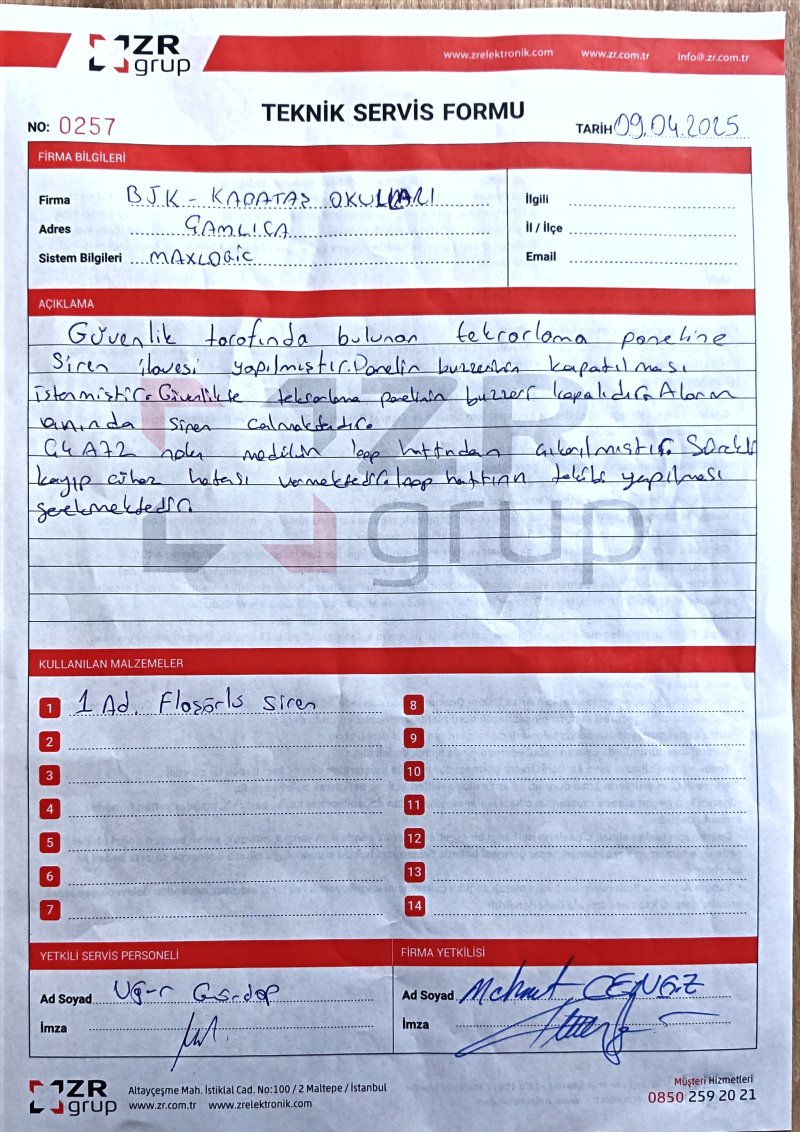 ZR grup
www.zrelektronik.com www.zr.com.tr info@.zr.com.tr
TEKNİK SERVİS FORMU
NO: 0257
TARİH 09.04.2025
FİRMA BİLGİLERİ
Firma BJK - KABATAŞ OKULLARI
Adres ÇAMLICA
Sistem Bilgileri MAXLOGIC
İlgili
İl / İlçe
Email
AÇIKLAMA
Güvenlik tarafında bulunan tekrarlama paneline
Siren ilavesi yapılmıştır. Panelin buzzerinin kapatılması
istenmiştir. Güvenlikte tekrarlama panelinin buzzerı kapalıdır. Alarm
anında siren çalmaktadır.
modülün loop hattından çıkarılmıştır. Sürekli
kayıp cihaz hatası vermektedir. loop hattının takibi yapılması
gerekmektedir.
ZR
grup
KULLANILAN MALZEMELER
1 1 Ad. Flaşörlü Siren
2
3
4
5
6
7
8
9
10
11
12
13
14
YETKİLİ SERVİS PERSONELİ
Ad Soyad Uğur
İmza
FİRMA YETKİLİSİ
Ad Soyad Mehmet CENGİZ
İmza
ZR grup
Altayçeşme Mah. İstiklal Cad. No:100 / 2 Maltepe / İstanbul
www.zr.com.tr www.zrelektronik.com
Müşteri Hizmetleri
0850 259 20 21